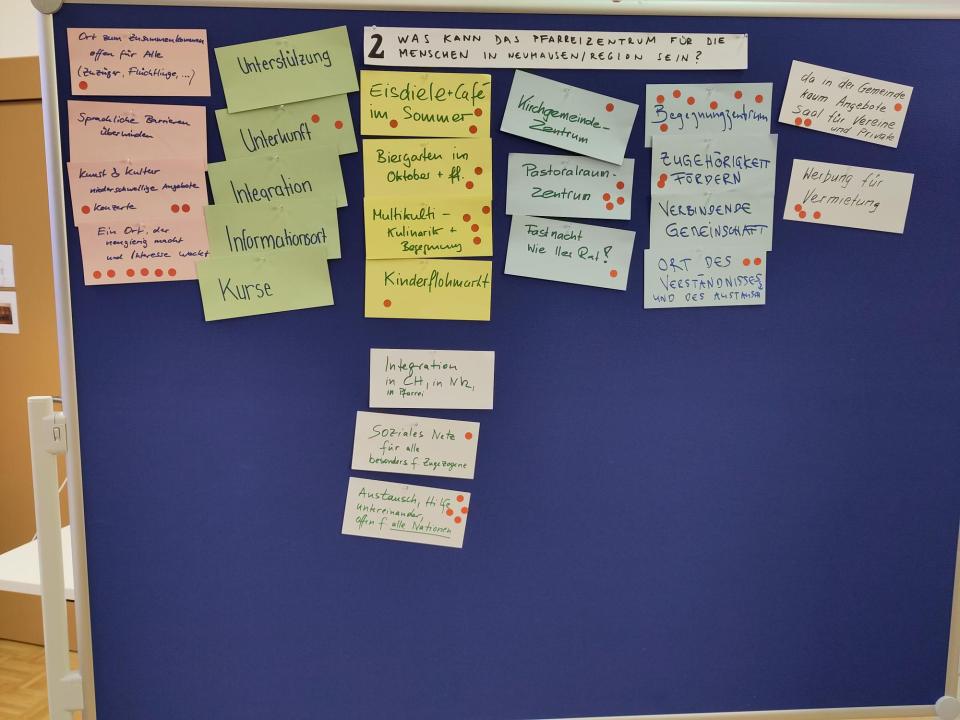 2 WAS KANN DAS PFARREIZENTRUM FÜR DIE
MENSCHEN IN NEUHAUSEN/REGION SEIN?
Ort zum Zusammenkommen
offen für Alle
(Zuzüger, Flüchtlinge, ...)
Sprachliche Barrieren
überwinden
Kunst & Kultur
niederschwellige Angebote
Konzerte
Ein Ort, der
neugierig macht
und Interesse weckt
Unterstützung
Unterkunft
Integration
Informationsort
Kurse
Eisdiele + Café
im Sommer
Biergarten im
Oktober + ff.
Multikulti-
Kulinarik +
Begegnung
Kinderflohmarkt
Integration
in CH, in NH,
in Pfarrei
Soziales Netz
für alle
besonders f. Zugezogene
Austausch, Hilfe
untereinander,
offen f alle Nationen
Kirchgemeinde-
Zentrum
Pastoralraum-
Zentrum
Fastnacht
Wie Iles Rat!
Begegnungzentrum
ZUGEHÖRIGKEIT
FÖRDERN
VERBINDENDE
GEMEINSCHAFT
ORT DES
VERSTÄNDNISSES
UND DES AUSTAUSCH
da in der Gemeinde
kaum Angebote
Saal für Vereine
und Private
Werbung für
Vermietung